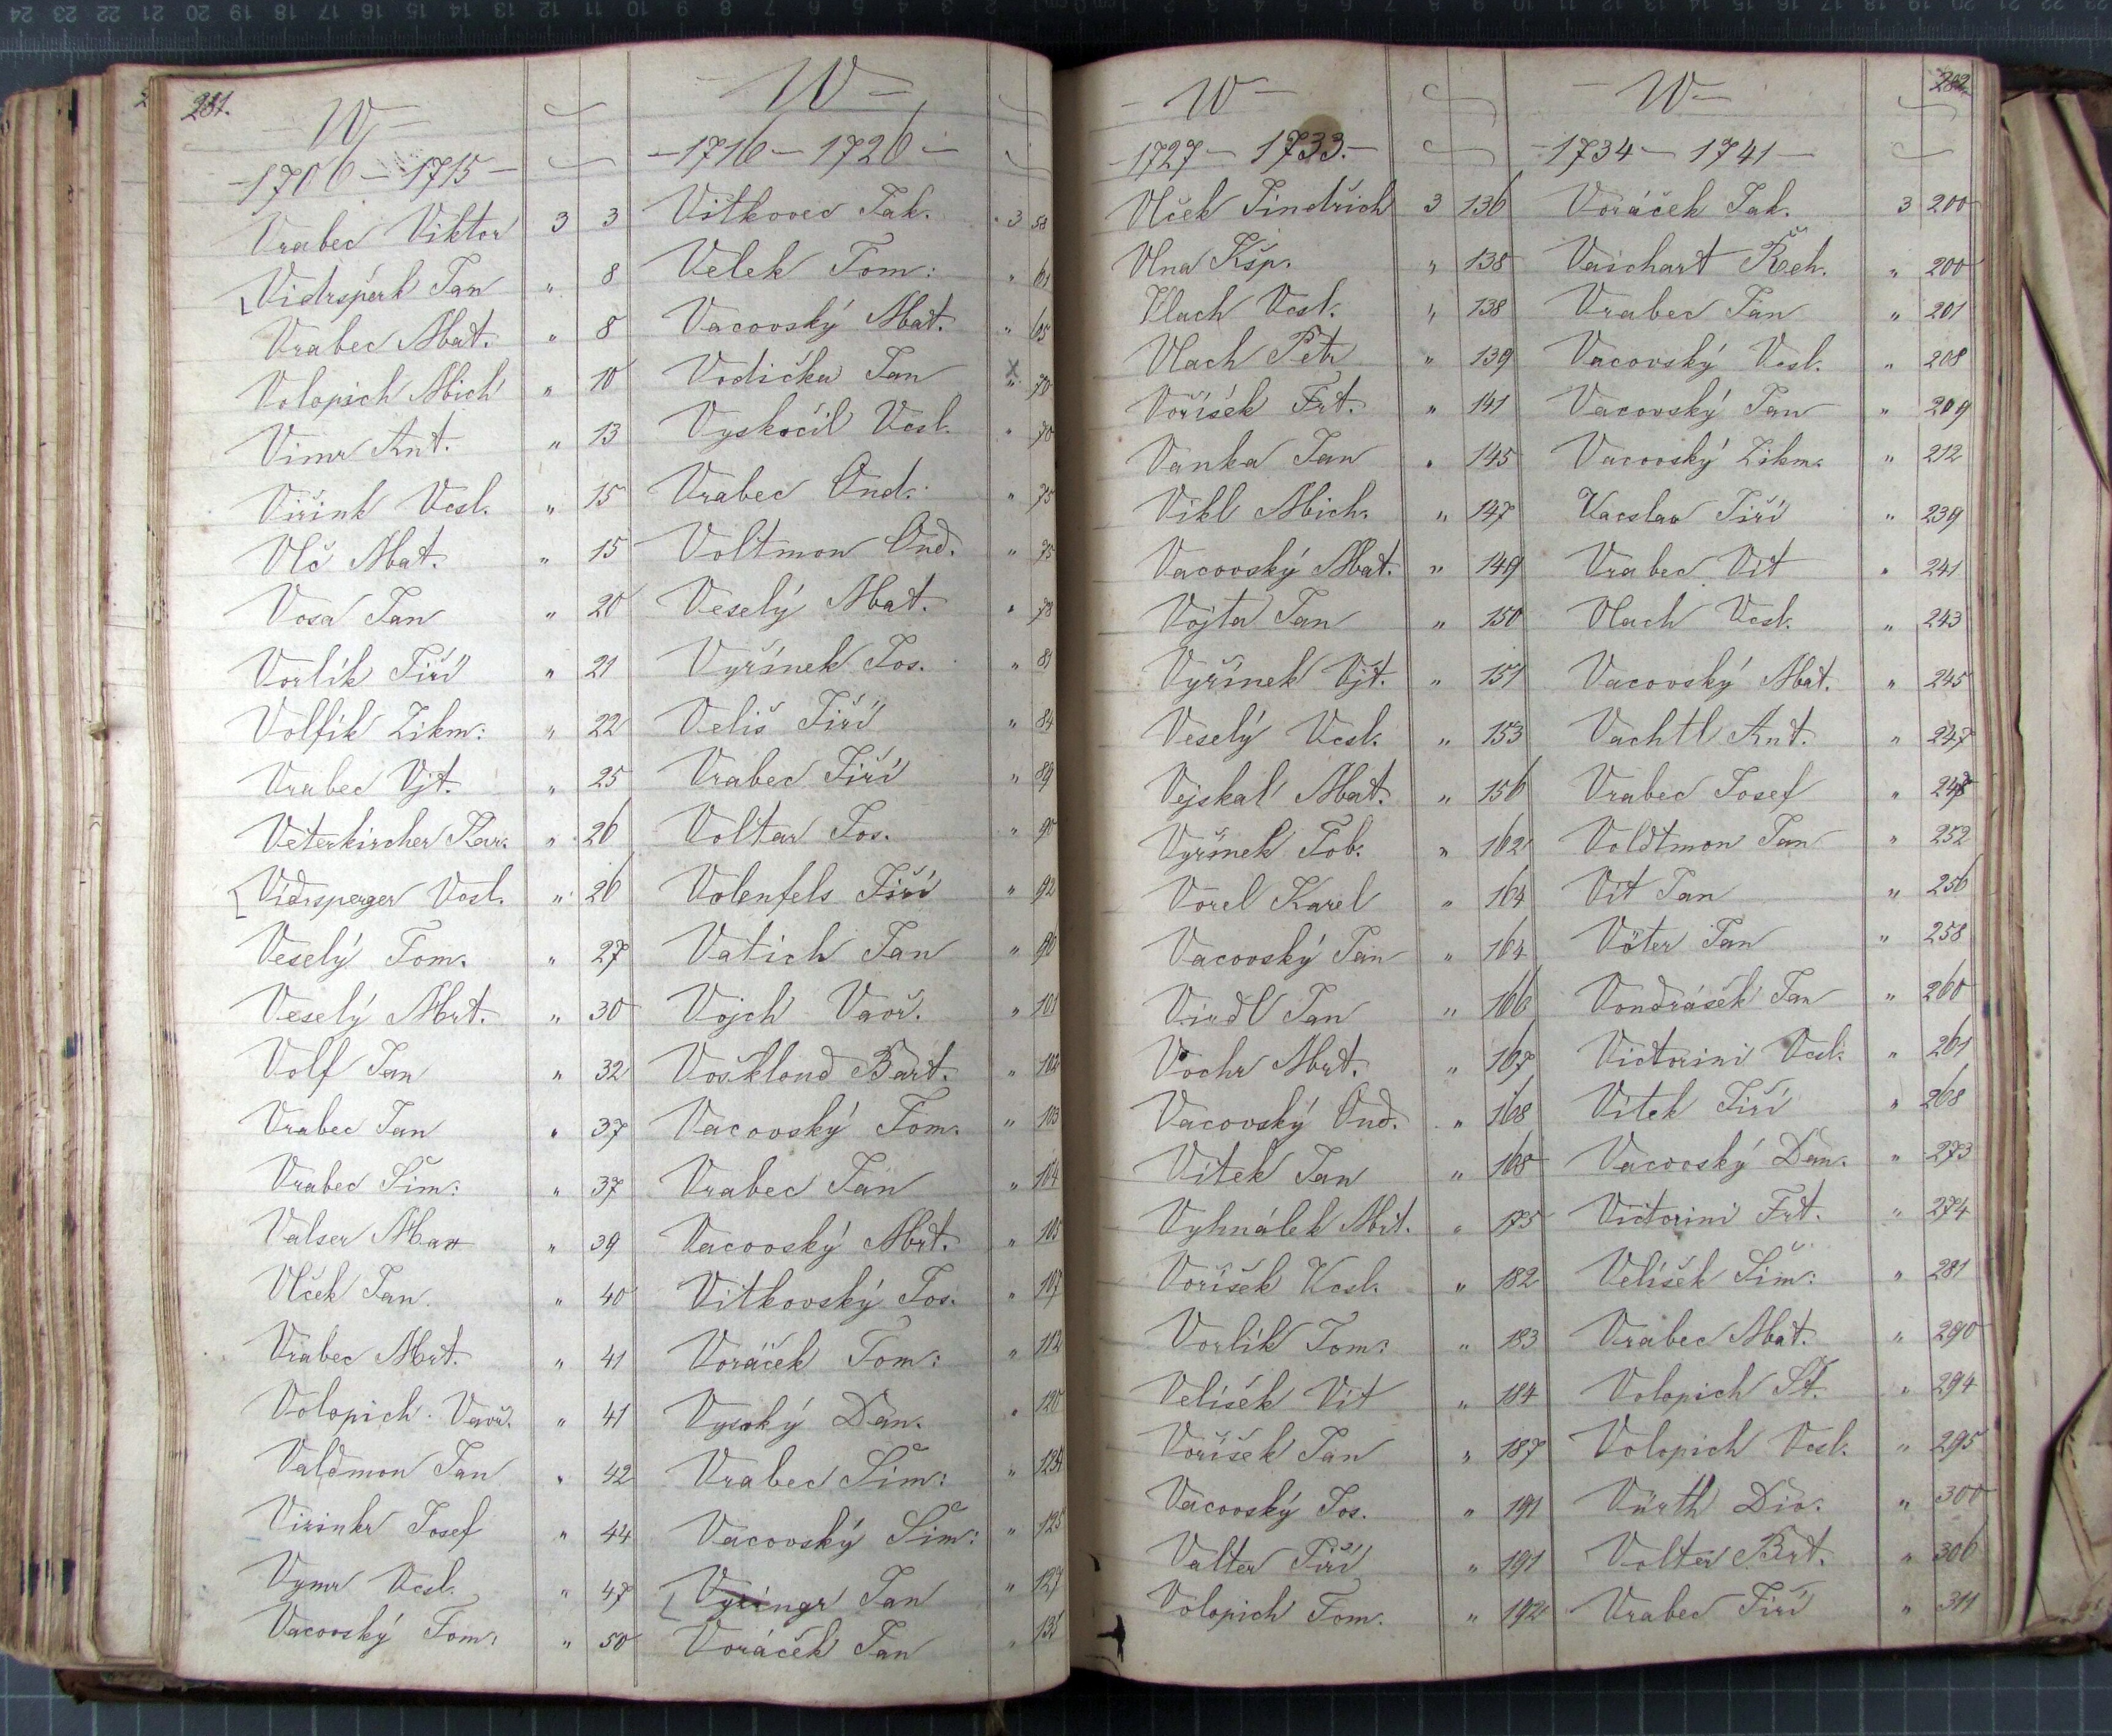 281.
W
1706 - 1715
Vrabec Viktor 3 3
Vidršperk Jan " 8
Vrabec Mat. " 8
Volopich Mich " 10
Vimr Ant. " 13
Viřink Vcsl. " 15
Vlč Mat. " 15
Vosa Jan " 20
Vorlík Jiří " 21
Volfík Zikm: " 22
Vrabec Vjt. " 25
Veterkircher Kar. " 26
Vidrsperger Vcsl. " 26
Veselý Tom. " 27
Veselý Mrt. " 30
Volf Jan " 32
Vrabec Jan " 37
Vrabec Šim: " 37
Valser Max " 39
Vlček Jan " 40
Vrabec Mrt. " 41
Volopich Vavř. " 41
Valdmon Jan " 42
Virinkr Josef " 44
Vymr Vcsl. " 47
Vacovský Tom. " 50
W
1716 - 1726
Vitkovec Jak. 3 58
Velek Tom: " 61
Vacovský Mat. " 65
Vodička Jan " 70
Vyskočil Vcsl. " 70
Vrabec Ond. " 75
Voltmon Ond. " 75
Veselý Mat. " 78
Vyřínek Jos. " 81
Veliš Jiří " 84
Vrabec Jiří " 89
Voltar Jos. " 90
Volenfels Jiří " 92
Vatich Jan " 96
Vojch Vavř. " 101
Vošklond Bart. " 102
Vacovský Tom. " 103
Vrabec Jan " 104
Vacovský Mrt. " 105
Vitkovský Jos. " 107
Voráček Tom: " 112
Vysoký Dan. " 120
Vrabec Šim: "
Vacovský Šim: " 125
Vyringr Jan " 127
Voráček Jan "
W
1727 - 1733.
Vlček Jindřich 3 136
Vlna Kšp. " 138
Vlach Vcsl. " 138
Vlach Petr " 139
Voříšek Frt. " 141
Vanka Jan " 145
Vikl Mich. " 147
Vacovský Mat. " 149
Vojta Jan " 150
Vyřínek Vjt. " 151
Veselý Vcsl. " 153
Vejskal Mat. " 156
Vyřínek Tob. " 162
Vorel Karel " 164
Vacovský Jan " 164
Virdl Jan " 166
Vochr Mrt. " 167
Vacovský Ond. " 168
Vítek Jan " 168
Vyhnálek Mrt. " 175
Voříšek Vcsl. " 182
Vorlík Tom: " 183
Velíšek Vít " 184
Voříšek Jan " 187
Vacovský Jos. " 191
Valter Jiří " 191
Volopich Tom. " 192
282.
W
1734 - 1741
Voráček Jak. 3 200
Vaichart Řeh. " 200
Vrabec Jan " 201
Vacovský Vcsl. " 208
Vacovský Jan " 209
Vacovský Zikm. " 212
Vacslav Jiří " 239
Vrabec Vít " 241
Vlach Vcsl. " 243
Vacovský Mat. " 245
Vachtl Ant. " 247
Vrabec Josef " 248
Voldtmon Jan " 252
Vít Jan " 256
Vöter Jan " 258
Vondrášek Jan " 260
Victorini Vcsl. " 261
Vítek Jiří " 268
Vacovský Dan. " 273
Victorini Frt. " 274
Velíšek Šim: " 281
Vrabec Mat. " 290
Volopich Št. " 294
Volopich Vcsl. " 295
Vürth Div. " 300
Volter Brt. " 306
Vrabec Jiří " 311